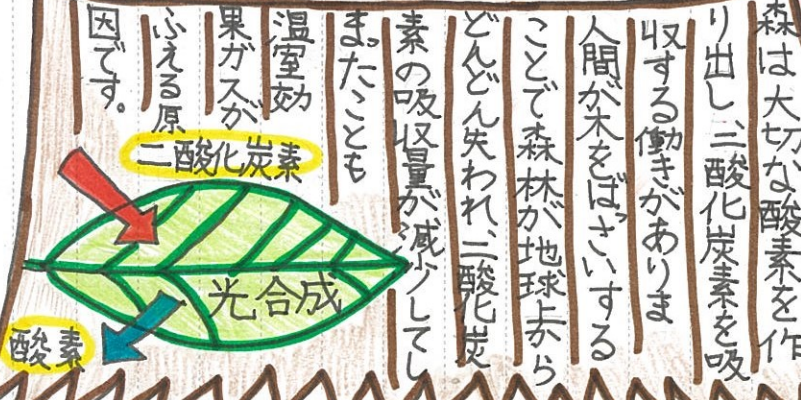 森は大切な酸素を作
り出し、二酸化炭素を吸
収する働きがありま
人間が木をばっさいする
ことで森林が地球上から
どんどん失われ、二酸化炭
素の吸収量が減少してし
まったことも
温室効
果ガスが
ふえる原
因です。
二酸化炭素
光合成
酸素